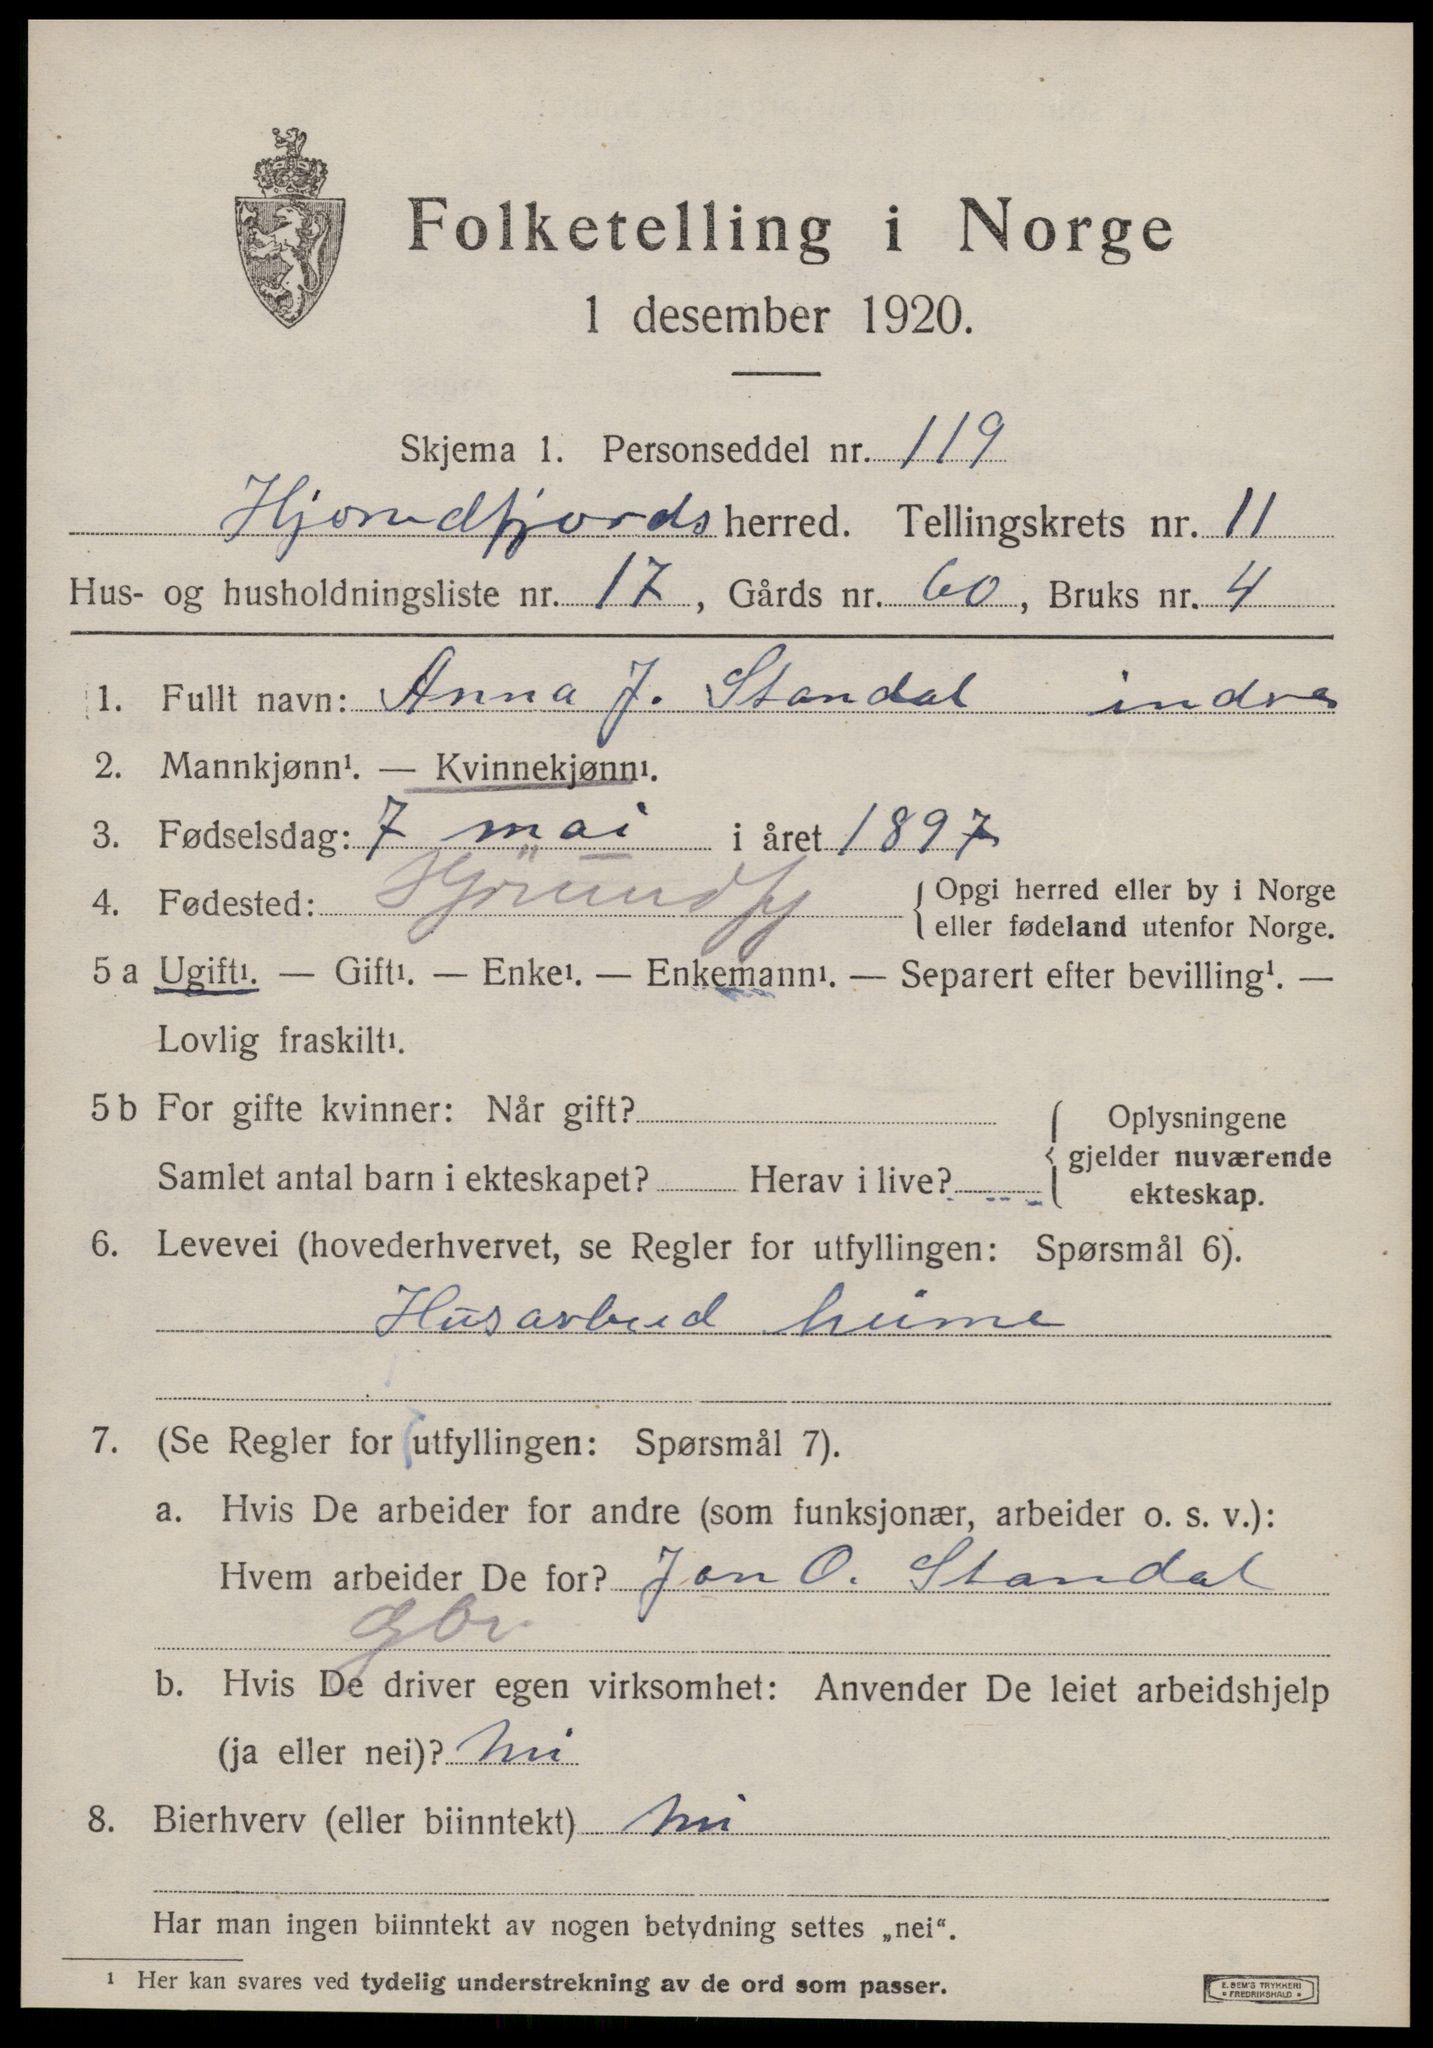 Folketelling i Norge
1 desember 1920.
Skjema 1. Personseddel nr. 119
Hjorundfjords herred. Tellingskrets nr. 11
Hus- og husholdningsliste nr. 17, Gårds nr. 60, Bruks nr. 4
1. Fullt navn: Anna J. Standal indre
2. Mannkjønn¹. — Kvinnekjønn¹.
3. Fødselsdag: 7 mai i året 1897
4. Fødested: Hjörundfj { Opgi herred eller by i Norge
eller fødeland utenfor Norge.
5 a Ugift¹. — Gift¹. — Enke¹. — Enkemann¹. — Separert efter bevilling¹. —
Lovlig fraskilt¹.
5 b For gifte kvinner: Når gift? { Oplysningene
gjelder nuværende
Samlet antal barn i ekteskapet? Herav i live? ekteskap.
6. Levevei (hovederhvervet, se Regler for utfyllingen: Spørsmål 6).
Husarbeid heime
7. (Se Regler for utfyllingen: Spørsmål 7).
a. Hvis De arbeider for andre (som funksjonær, arbeider o. s. v.):
Hvem arbeider De for? Jon O. Standal
Gbr.
b. Hvis De driver egen virksomhet: Anvender De leiet arbeidshjelp
(ja eller nei)? nei
8. Bierhverv (eller biinntekt) nei
Har man ingen biinntekt av nogen betydning settes „nei“.
¹ Her kan svares ved tydelig understrekning av de ord som passer.
E. SEM'S TRYKKERI
FREDRIKSHALD